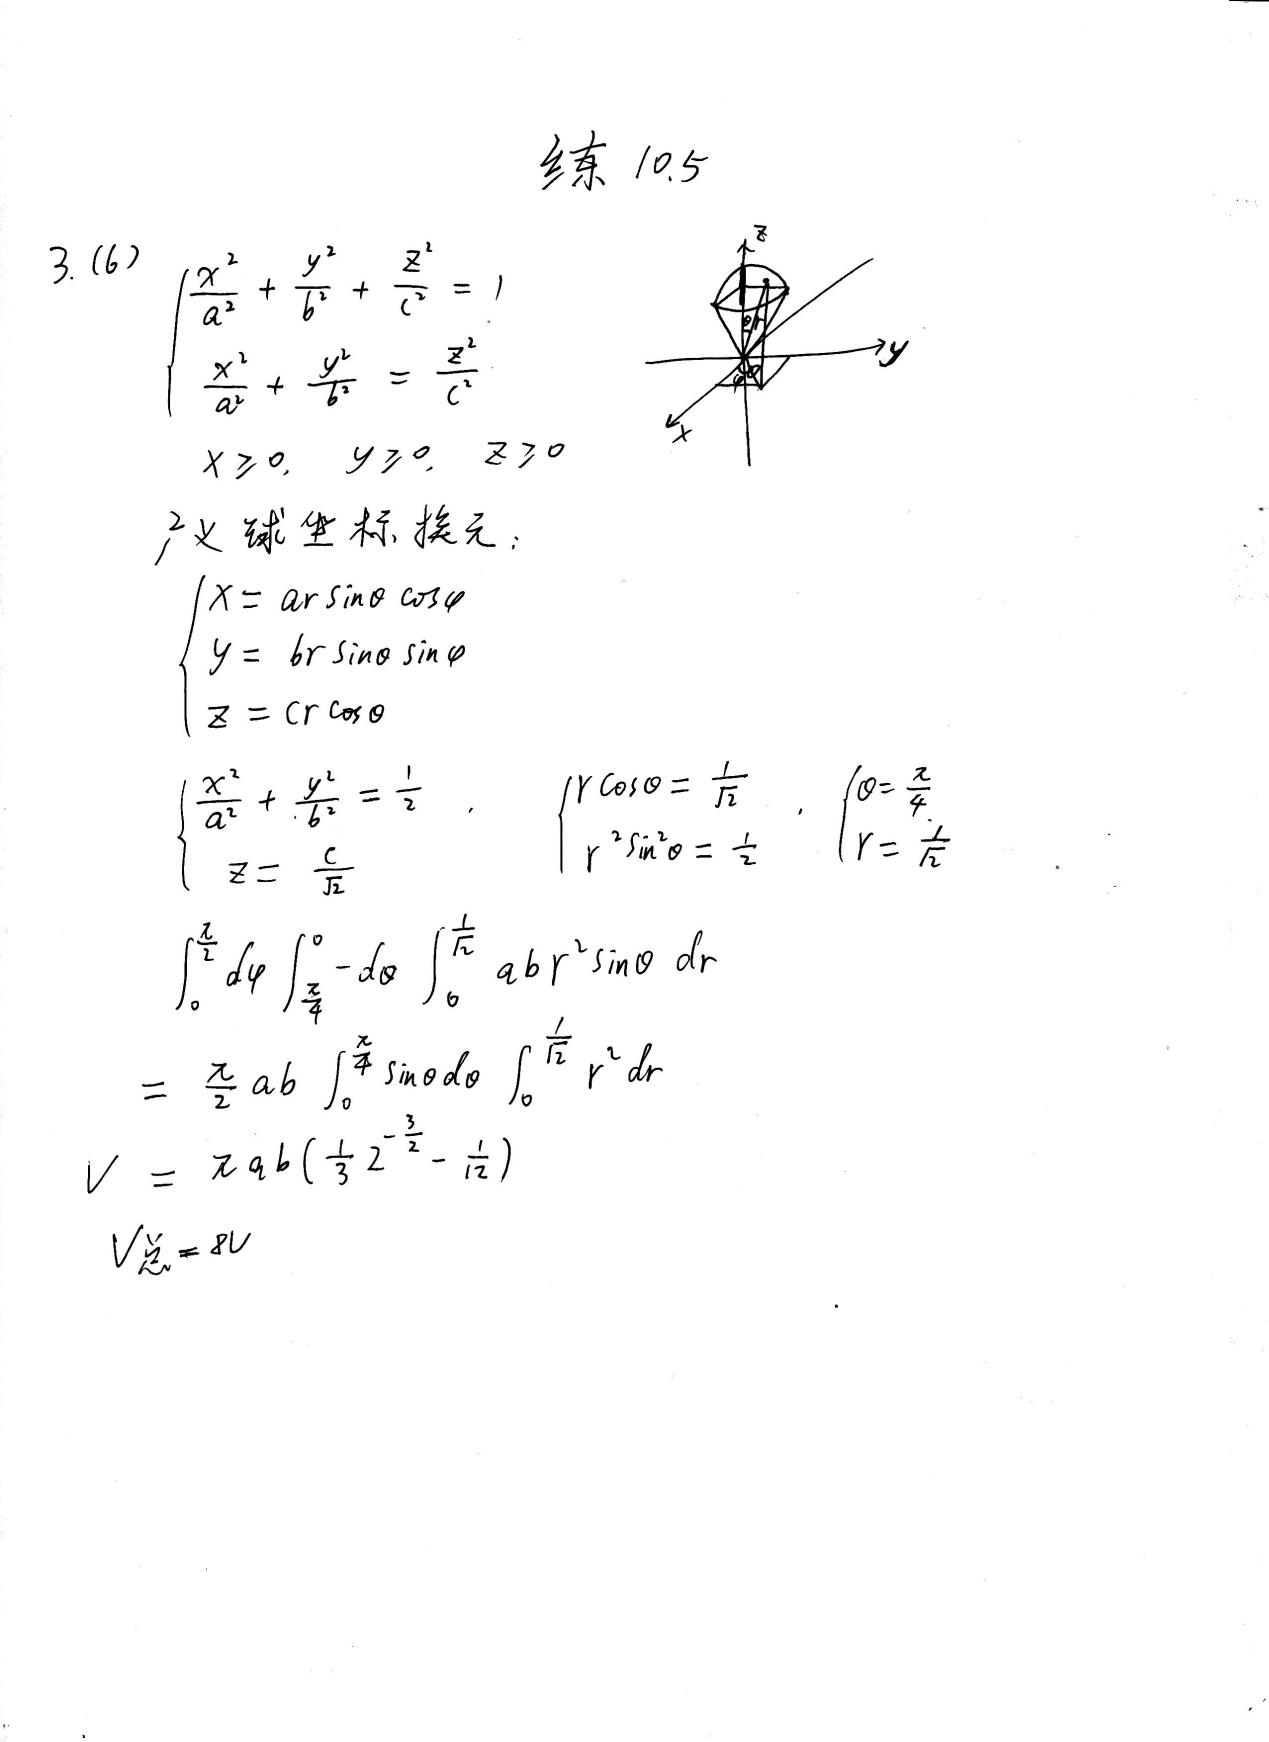 练 10.5
3. (6) { x²/a² + y²/b² + z²/c² = 1
x²/a² + y²/b² = z²/c²
x ≥ 0, y ≥ 0, z ≥ 0
z
θ r
y
φ
x
广义球坐标换元:
{ x = ar sinθ cosφ
y = br sinθ sinφ
z = cr cosθ
{ x²/a² + y²/b² = 1/2 , { r cosθ = 1/√2 , { θ = π/4
z = c/√2 r² sin²θ = 1/2 r = 1/√2
∫₀^{π/2} dφ ∫_{π/4}^0 -dθ ∫₀^{1/√2} abr² sinθ dr
= π/2 ab ∫₀^{π/4} sinθ dθ ∫₀^{1/√2} r² dr
V = πab(1/3 2^{-3/2} - 1/12)
V总 = 8V